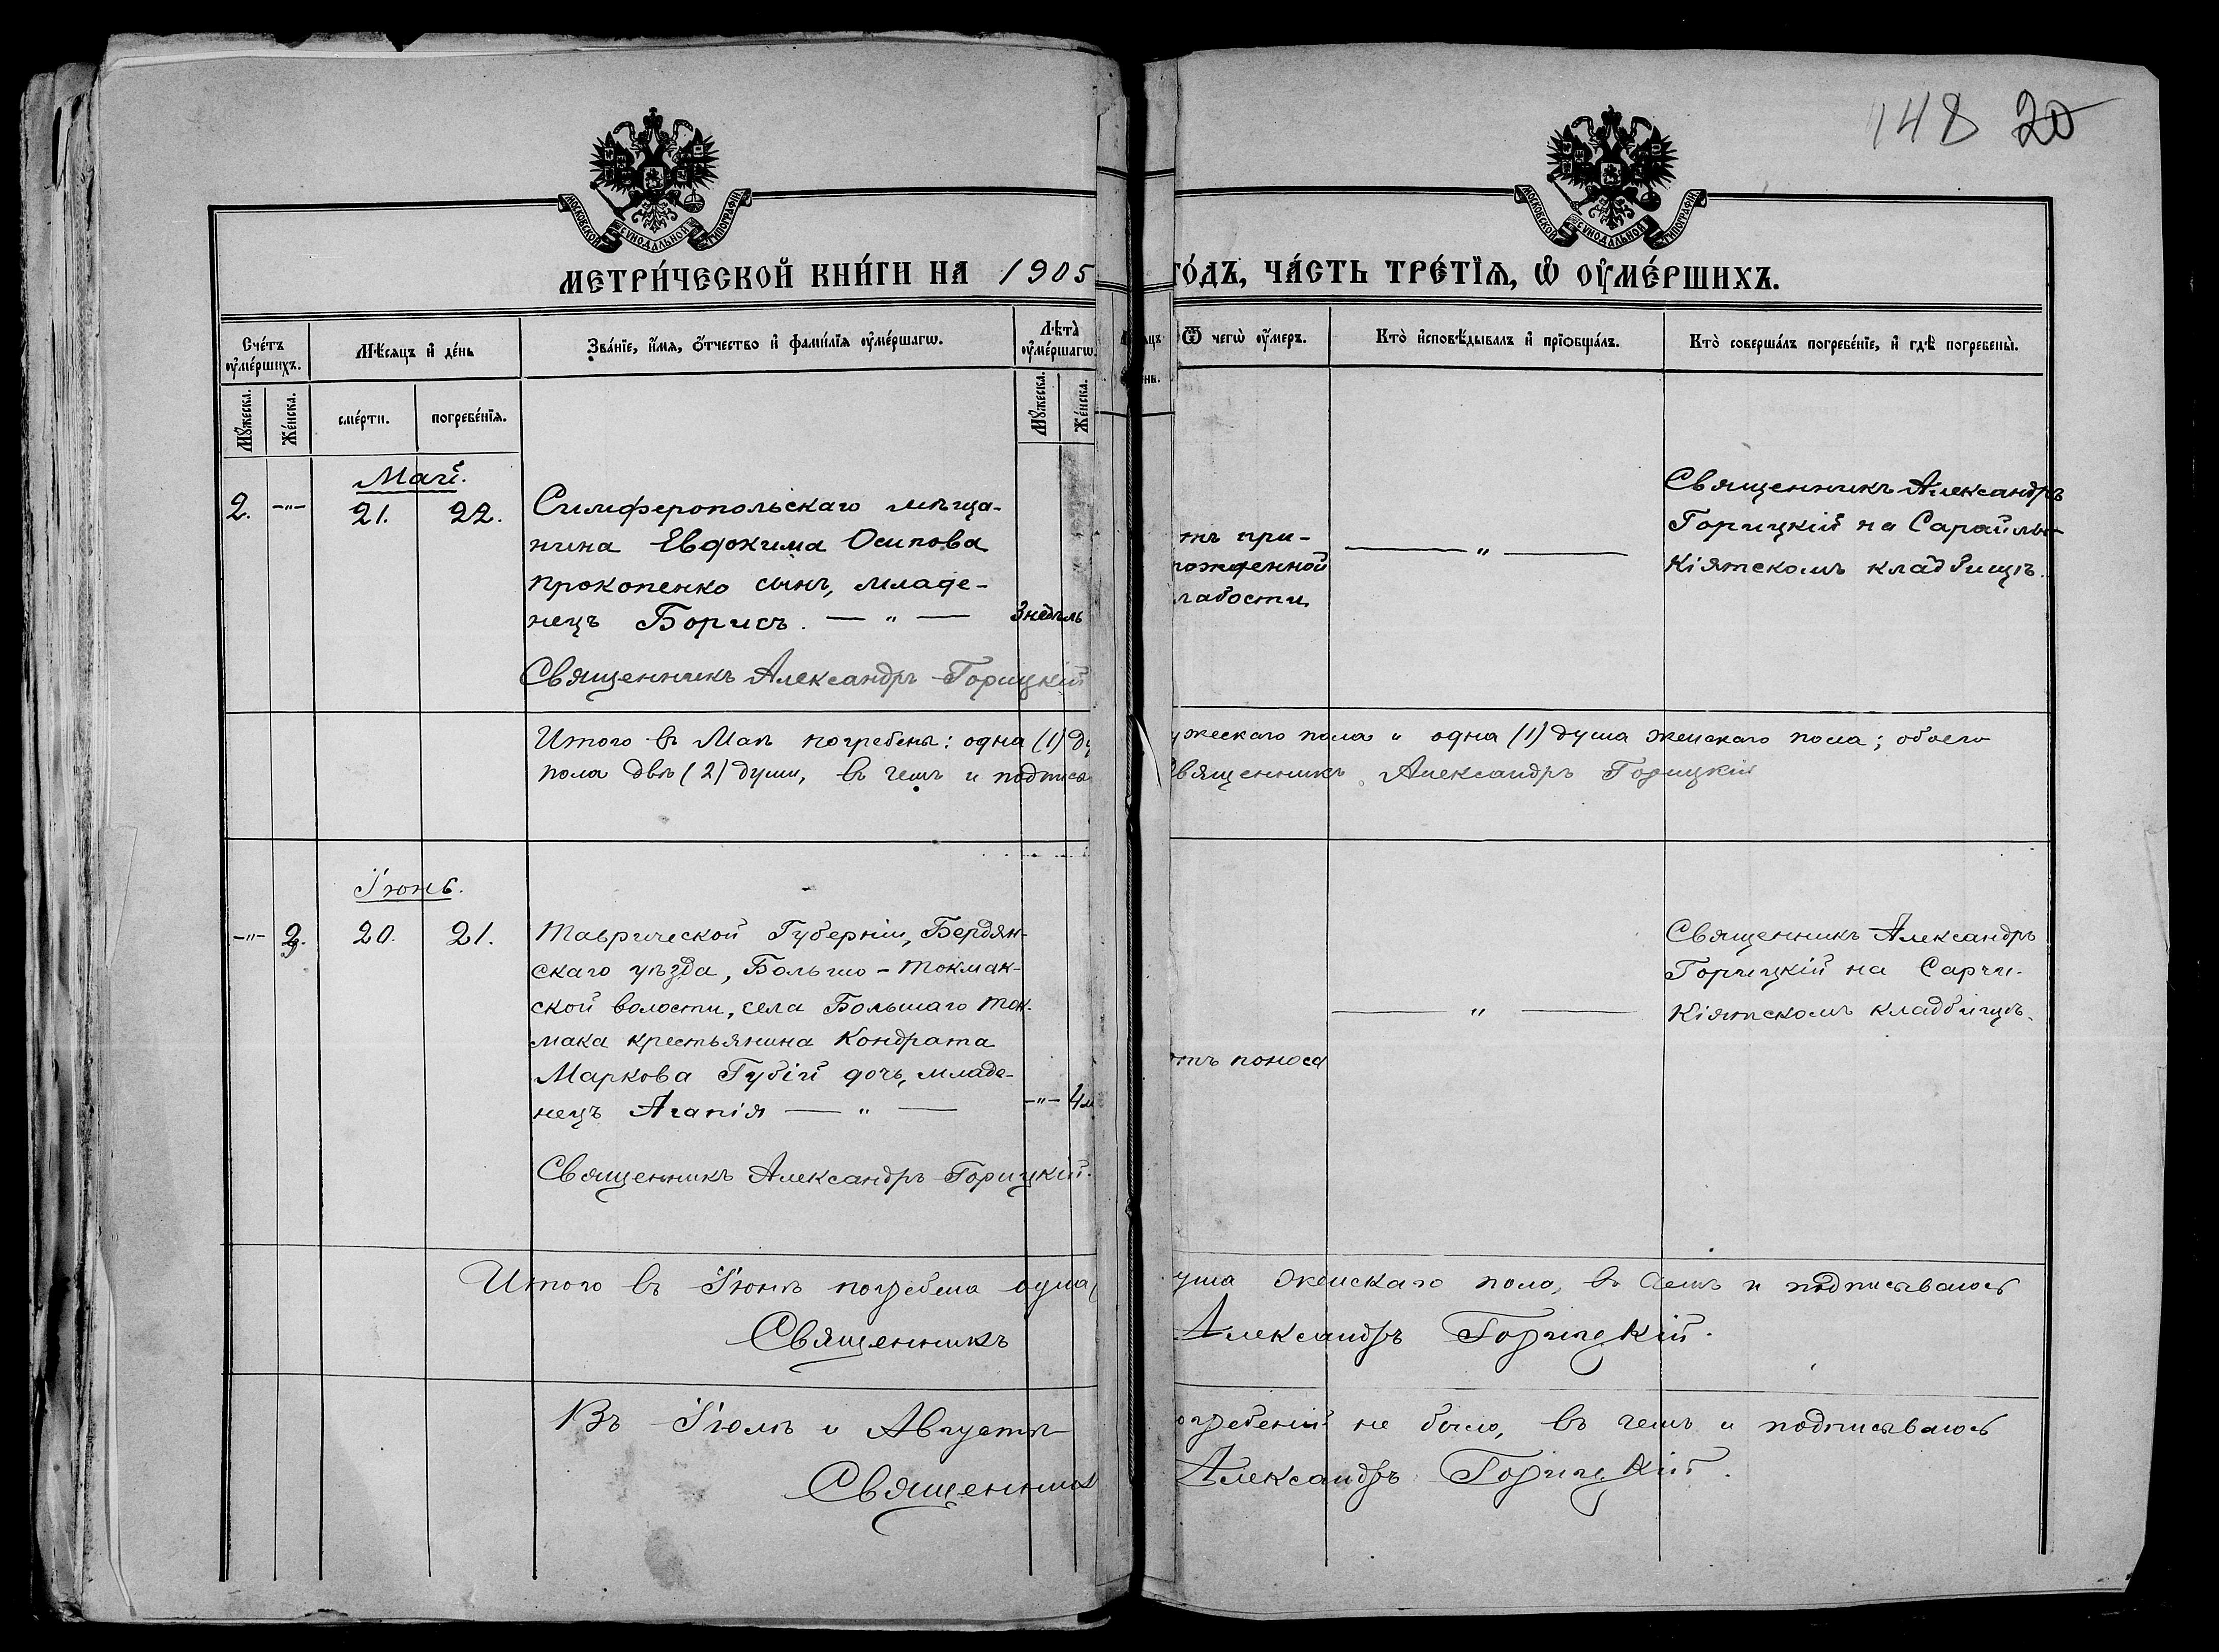 148 20
МОСКОВСКОЙ СѴНОДАЛЬНОЙ ТИПОГРАФІИ
МОСКОВСКОЙ СѴНОДАЛЬНОЙ ТИПОГРАФІИ
МЕТРИ́ЧЕСКОЙ КНИ́ГИ НА 1905
ГО́ДЪ, ЧА́СТЬ ТРЕ́ТІѦ, Ѽ ОУ҆МЕ́РШИХЪ.
Сче́тъ оу҆ме́ршихъ.
Мѣ́сяцъ и҆ де́нь
Зва́нїе, и҆́мя, ѻ҆́тчество и҆ фами́лїя оу҆ме́ршагѡ.
Лѣ́та̀ оу҆ме́ршагѡ.
Ѿ чегѡ̀ оу҆́меръ.
Кто̀ и҆сповѣ́дывалъ и҆ прїѡбща́лъ.
Кто̀ соверша́лъ погребе́нїе, и҆ гдѣ̀ погребены̀.
Мꙋ́жеска.
Же́нска.
сме́рти.
погребе́нїя.
Мꙋ́жеска.
Же́нска.
Май.
2. -"- 21. 22.
Симферопольскаго мѣща-
нина Евдокима Осипова
Прокопенко сынъ, младе-
нецъ Борисъ. — " — 3 недѣль
Священникъ Александръ Горицкій
тъ при-
рожденной
лабости
— " —
Священникъ Александръ
Горицкій на Сарайлы-
Кіятскомъ кладбищѣ.
Итого въ Маѣ погребены: одна (1) ду
жескаго пола и одна (1) душа женскаго пола; обоего
пола двѣ (2) души, въ чемъ и подписа
Священникъ Александръ Горицкій
Іюнь.
-"- 2. 20. 21.
Таврической Губерніи, Бердян-
скаго уѣзда, Больше-Токмак-
ской волости, села Большаго Ток-
мака крестьянина Кондрата
Маркова Губій дочь, младе-
нецъ Агапія — " — -"- 4 м
Священникъ Александръ Горицкій.
отъ поноса
— " —
Священникъ Александръ
Горицкій на Сарчи-
Кіятскомъ кладбищѣ.
Итого въ Іюнѣ погребена одна (
уша женскаго пола, въ чемъ и подписываюсь
Священникъ
Александръ Горицкій.
Въ Іюлѣ и Августѣ
огребеній не было, въ чемъ и подписываюсь
Священник
Александръ Горицкій.